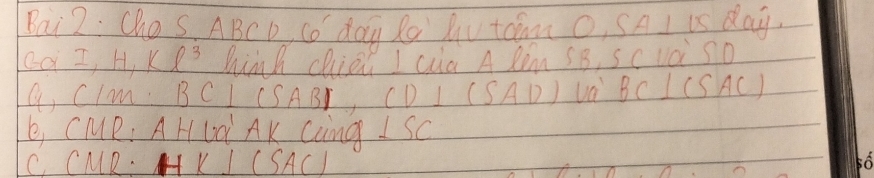 Bài 2: Cho S.ABCD, có đáy là hv tâm O, SA ⊥ đáy.
Gọi I, H, K l³ hình chiếu ⊥ của A lên SB, SC và SD
a, C/m: BC ⊥ (SAB), CD ⊥ (SAD) và BC ⊥ (SAC)
b, CMR: AH và AK cùng ⊥ SC
C, CMR: HK ⊥ (SAC)
số